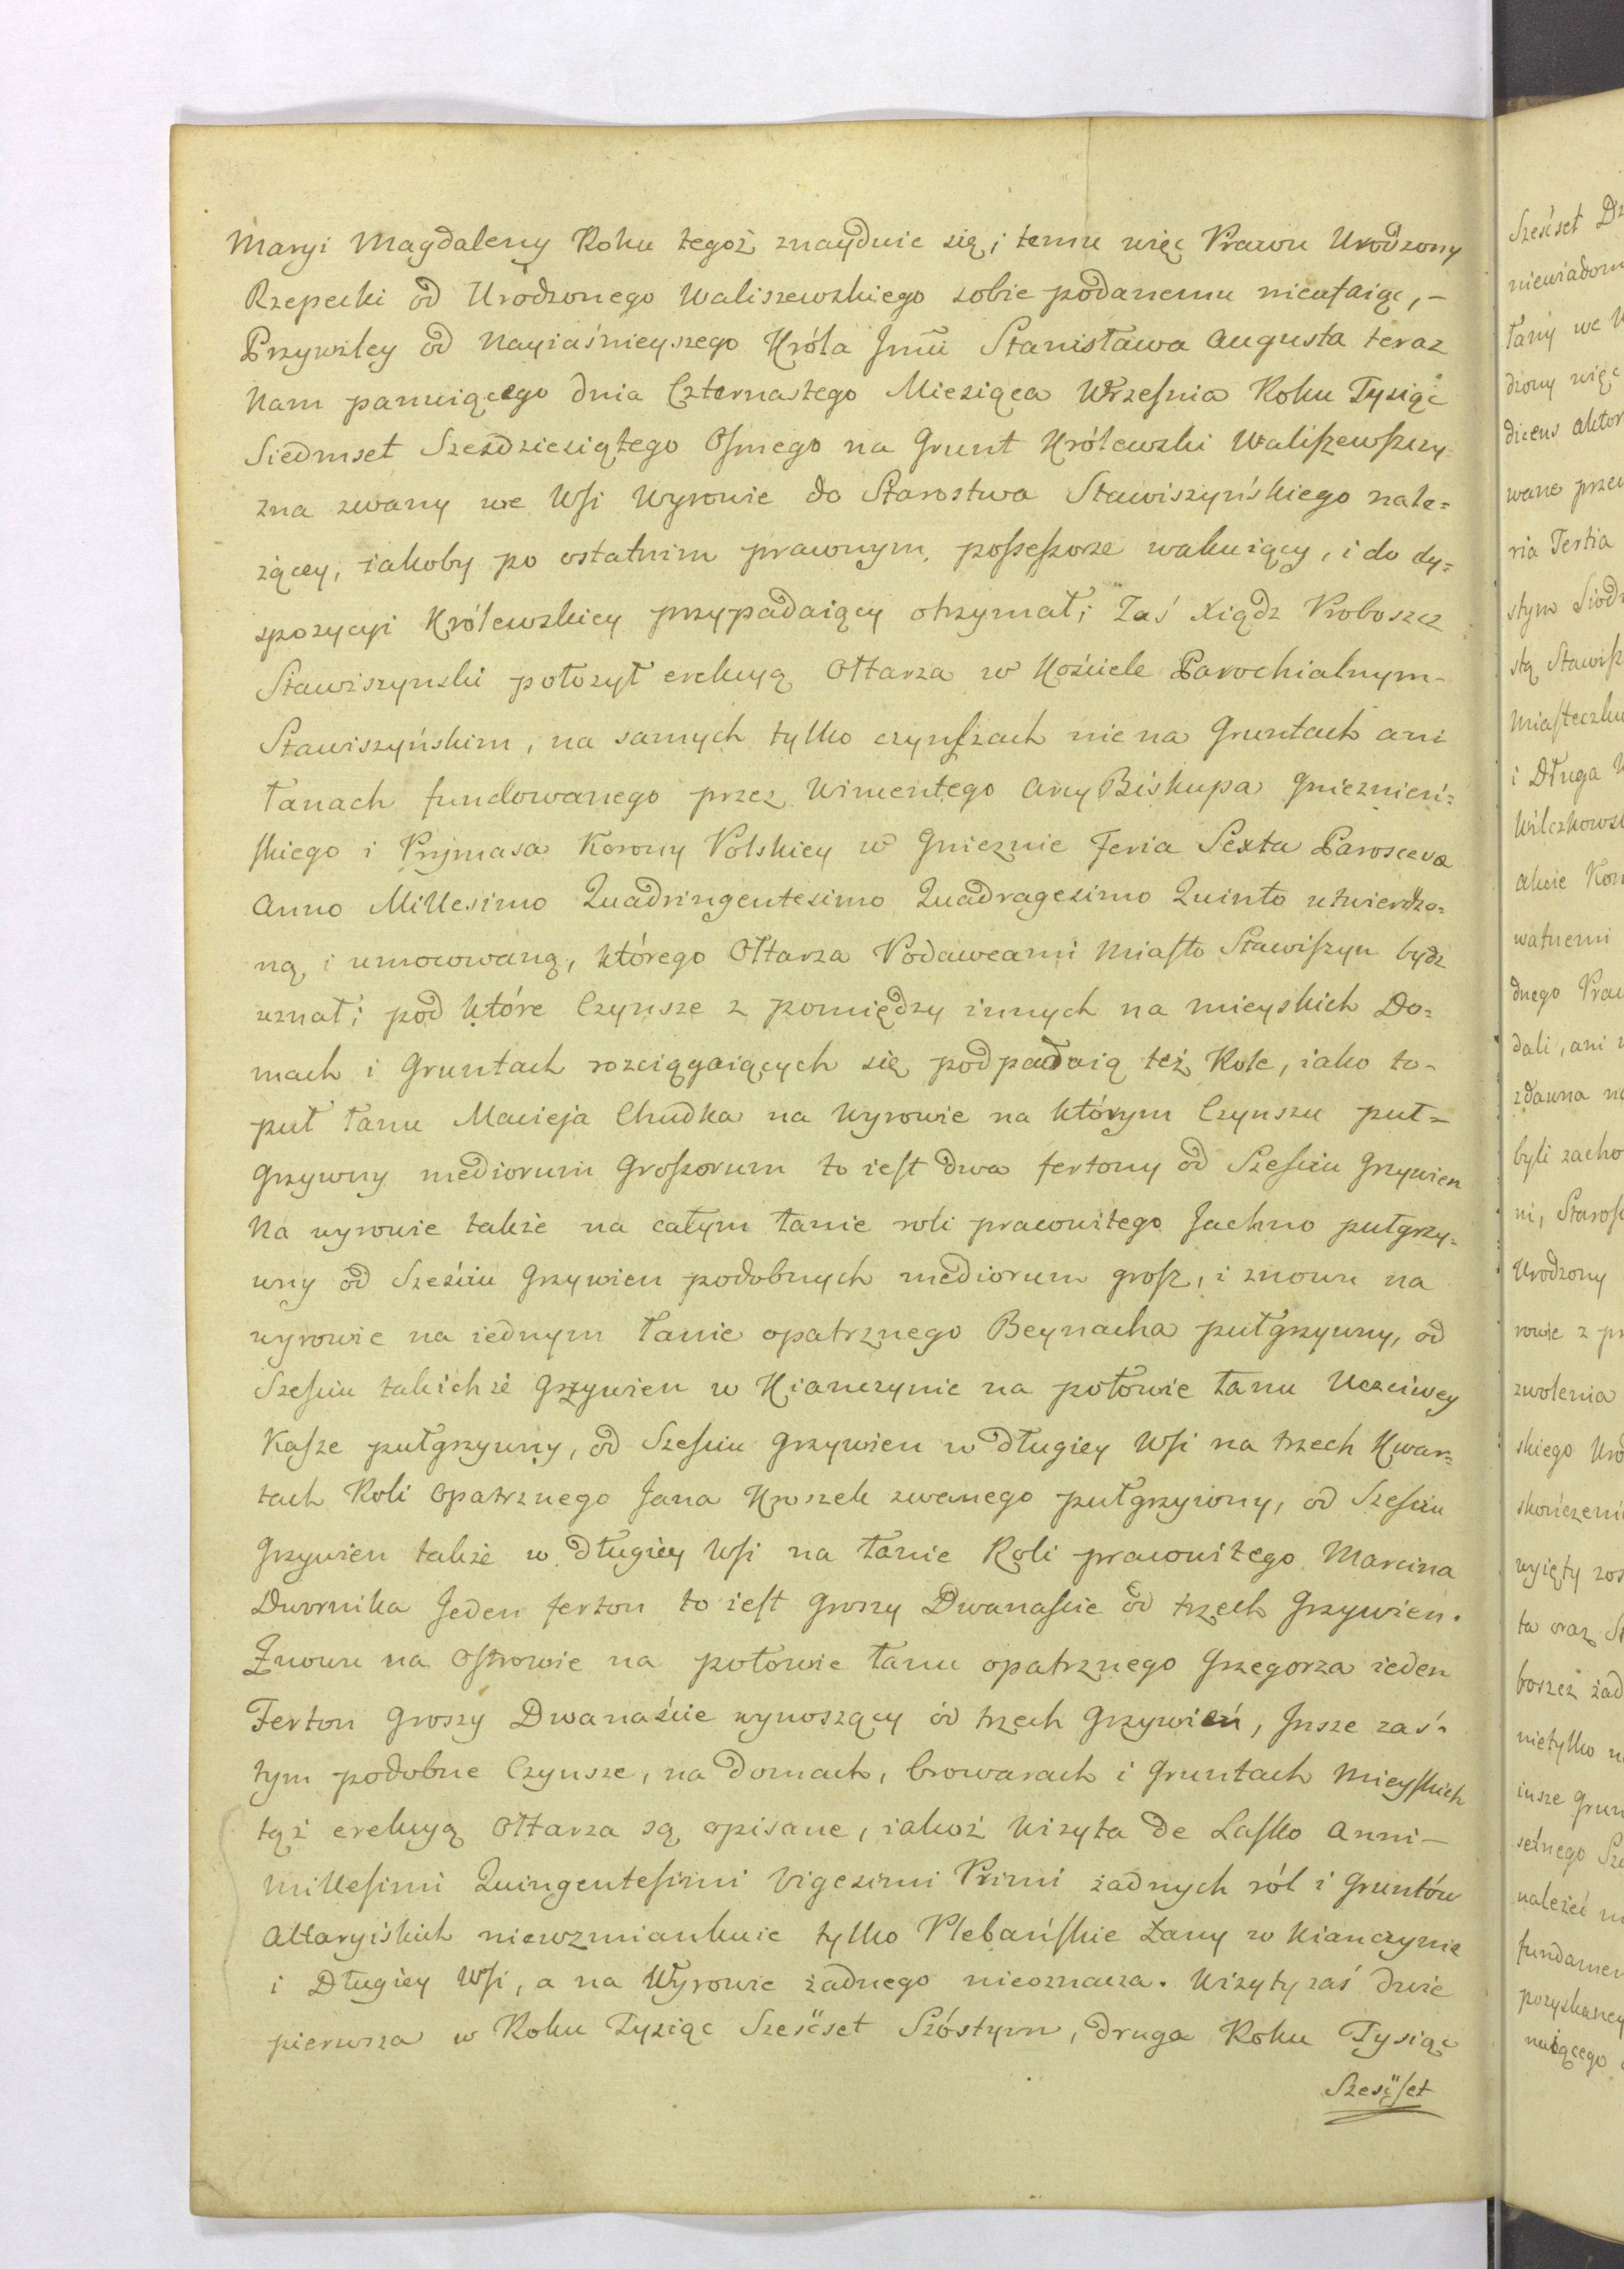 Maryi Magdaleny Roku tegoż znayduie się; temu więc Prawu Urodzony
Rzepecki od Urodzonego Waliszewskiego sobie podanemu nieufaiąc, -
Przywiley od Nayiaśnieyszego Króla Jmci Stanisława Augusta teraz
Nam panuiącego dnia Czternastego Miesiąca Września Roku Tysiąc
Siedmset Sześdziesiątego Osmego na Grunt Królewski Waliszewszczy
zna zwany we Wsi Wyrowie do Starostwa Stawiszyńskiego nale=
żącey, iakoby po ostatnim prawnym possessorze wakuiący, i do dy=
spozycyi Królewskiey przypadaiący otrzymał; Zaś Xiądz Proboszcz
Stawiszynski położył erekcyą Ołtarza w Kościele Parochialnym-
Stawiszyńskim, na samych tylko czynszach nie na Gruntach ani
Łanach fundowanego przez Wincentego Arcy Biskupa Gnieznień=
skiego i Prymasa Korony Polskiey w Gnieznie Feria Sexta Parosceva
Anno Millesimo Quadringentesimo Quadragesimo Quinto utwierdzo=
ną, i umocowaną, którego Ołtarza Podawcami Miasto Stawiszyn bydz
uznał; pod które Czynsze z pomiędzy innych na mieyskich Do=
mach i Gruntach rozciągaiących się podpadaią też Role, iako to-
puł Łanu Macieja Chudka na Wyrowie na którym Czynszu puł=
Grzywny mediorum Grossorum to iest dwa fertony od Sześciu Grzywien
Na wyrowie także na całym Łanie roli pracowitego Jachno pułgrzy=
wny od Sześciu Grzywien podobnych mediorum gross, i znowu na
wyrowie na iednym Łanie opatrznego Beynacha pułgrzywny, od
Sześciu takichże Grzywien w Kianczynie na połowie Łanu Uczciwey
Kasze pułgrzywny, od Sześciu Grzywien w Długiey Wsi na trzech Kwar=
tach Roli Opatrznego Jana Kroszek zwanego pułgrzywny, od Sześciu
Grzywien także w Długiey Wsi na Łanie Roli pracowitego Marcina
Dwornika Jeden ferton to iest Groszy Dwanaście od trzech Grzywien.
Znowu na Ostrowie na połowie Łanu opatrznego Grzegorza ieden
Ferton Groszy Dwanaście wynoszący od trzech Grzywień, Jnsze zaś-
tym podobne Czynsze, na Domach, browarach i Gruntach Mieyskich
tąż erekcyą Ołtarza są opisane, iakoż Wizyta de Lasko Anni-
Millesimi Quingentesimi Vigesimi Primi żadnych ról i Gruntów
Altaryiskich niewzmiankuie tylko Plebańskie Łany w Kianczynie
i Długiey Wsi, a na Wyrowie żadnego nieoznacza. Wizyty zaś dwie
pierwsza w Roku Tysiąc Sześćset Szóstym, druga Roku Tysiąc
Sześćset
Sześćset
niewiadom
łany we
dzony więc
dicens aktor
wano
ria Tertia
stym Siedm
stą Stawisz
Miasteczku
i Długa
Wilczkowsk
akcie Kon
watnemi
dnego Praw
dali, ani
zdawna
byli zacho
ni, Staros
Urodzony
rowie z
zwolenia
skiego Uro
skończeni
wyięty zos
ta oraz
borzeż żad
nietylko
insze Grun
setnego
należeć
fundamen
pozyskaney
nuiącego